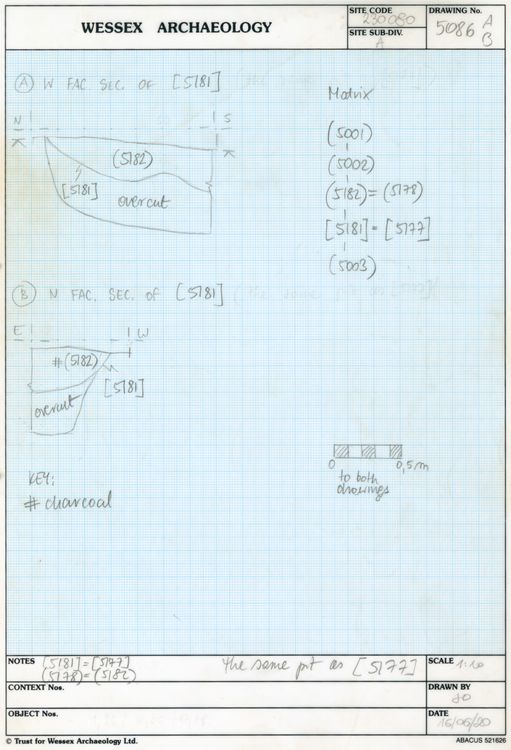 WESSEX ARCHAEOLOGY
SITE CODE
230080
SITE SUB-DIV.
A
DRAWING No.
5086 A
B
(A) W FAC. SEC. OF [5181]
N
S
(5182)
[5181]
overcut
Matrix
(5001)
(5002)
(5182) = (5178)
[5181] = [5177]
(5003)
(B) N FAC. SEC. OF [5181]
E
W
#(5182)
[5181]
overcut
0 0,5m
to both
drawings
KEY:
# charcoal
NOTES [5181] = [5177]
(5178) = (5182)
the same pit as [5177]
SCALE 1:10
CONTEXT Nos.
DRAWN BY
OBJECT Nos.
DATE
16/06/20
© Trust for Wessex Archaeology Ltd.
ABACUS 521626